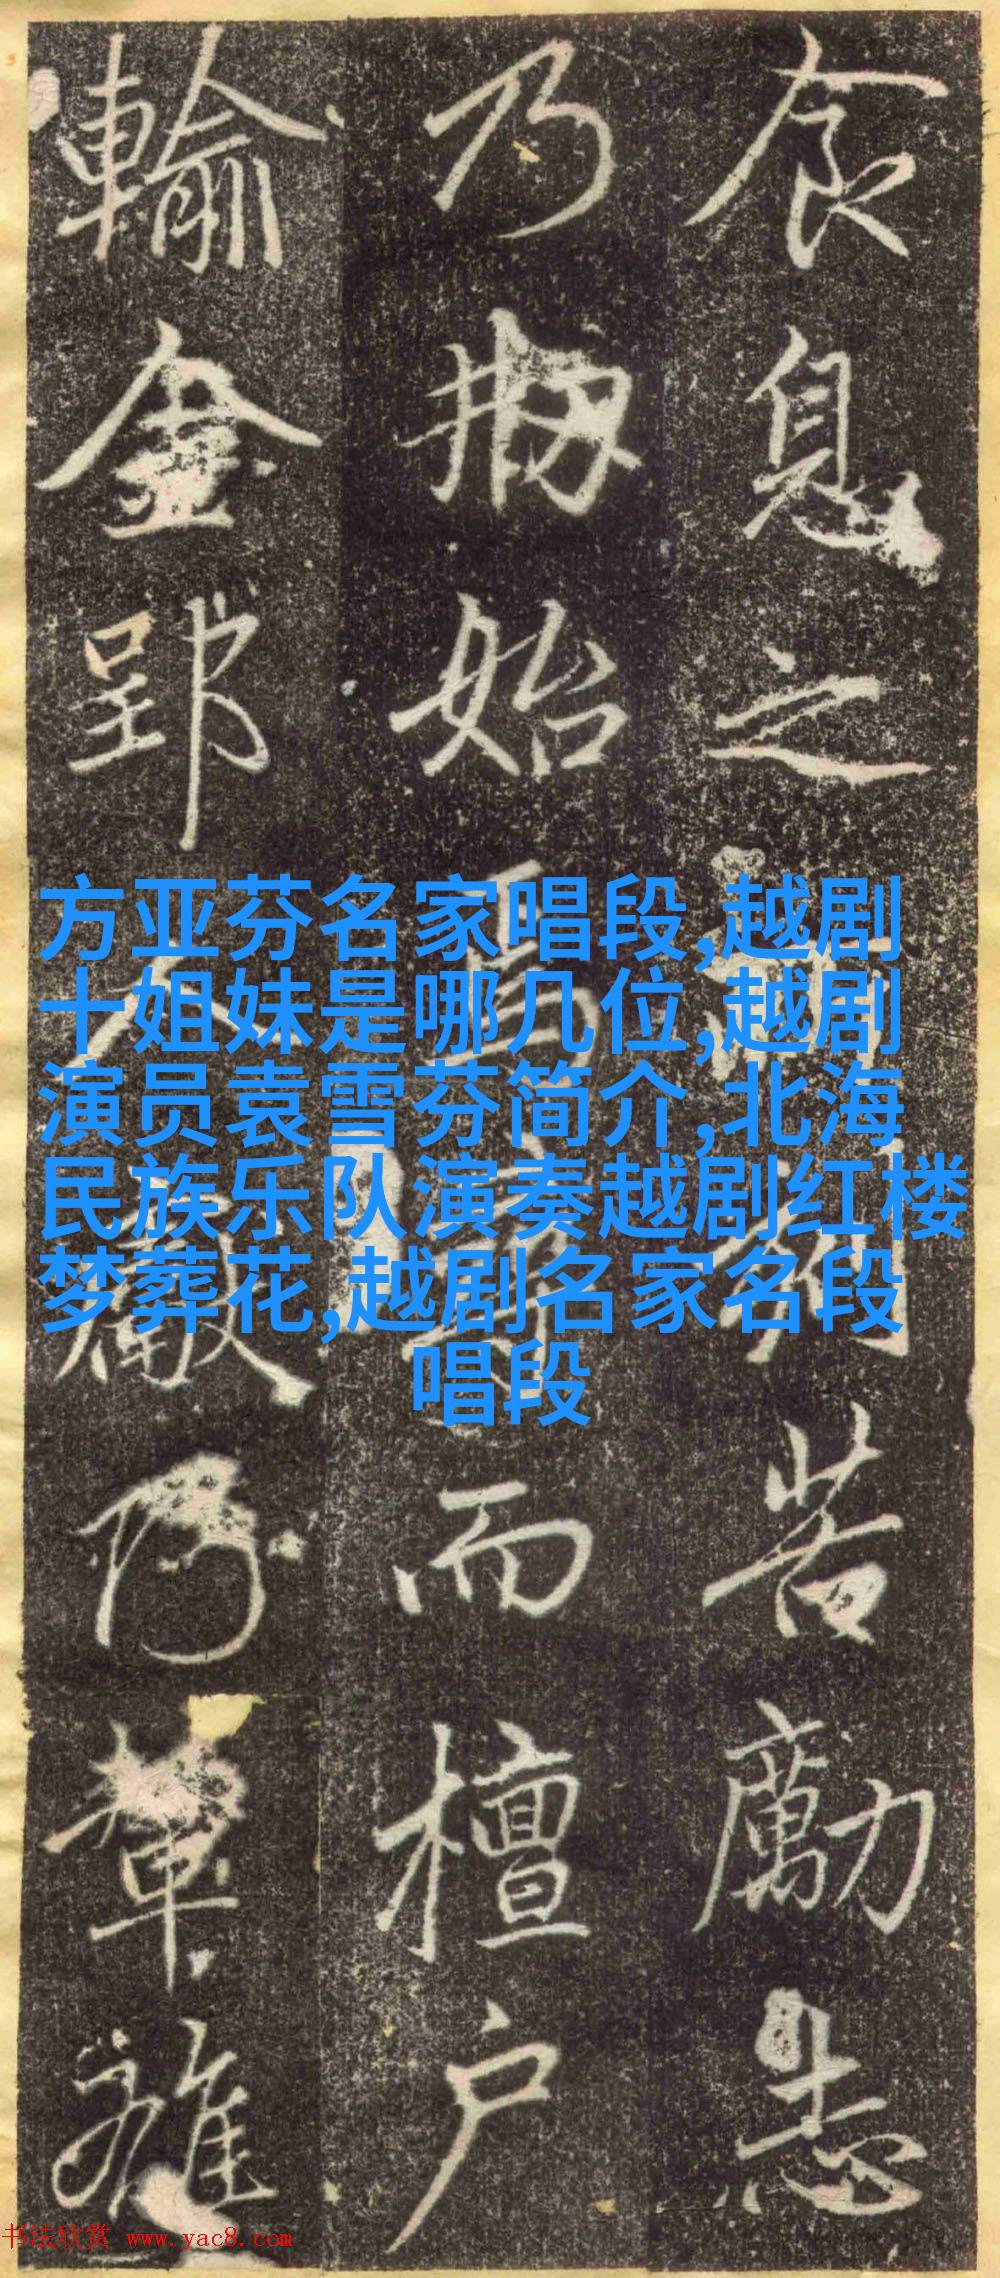 食息之
苦勵志
乃
始
而檀戶
輸金郢
輩雖
方亚芬名家唱段,越剧
十姐妹是哪几位,越剧
演员袁雪芬简介,北海
民族乐队演奏越剧红楼
梦葬花,越剧名家名段
唱段
书法欣赏 www.yac8.com